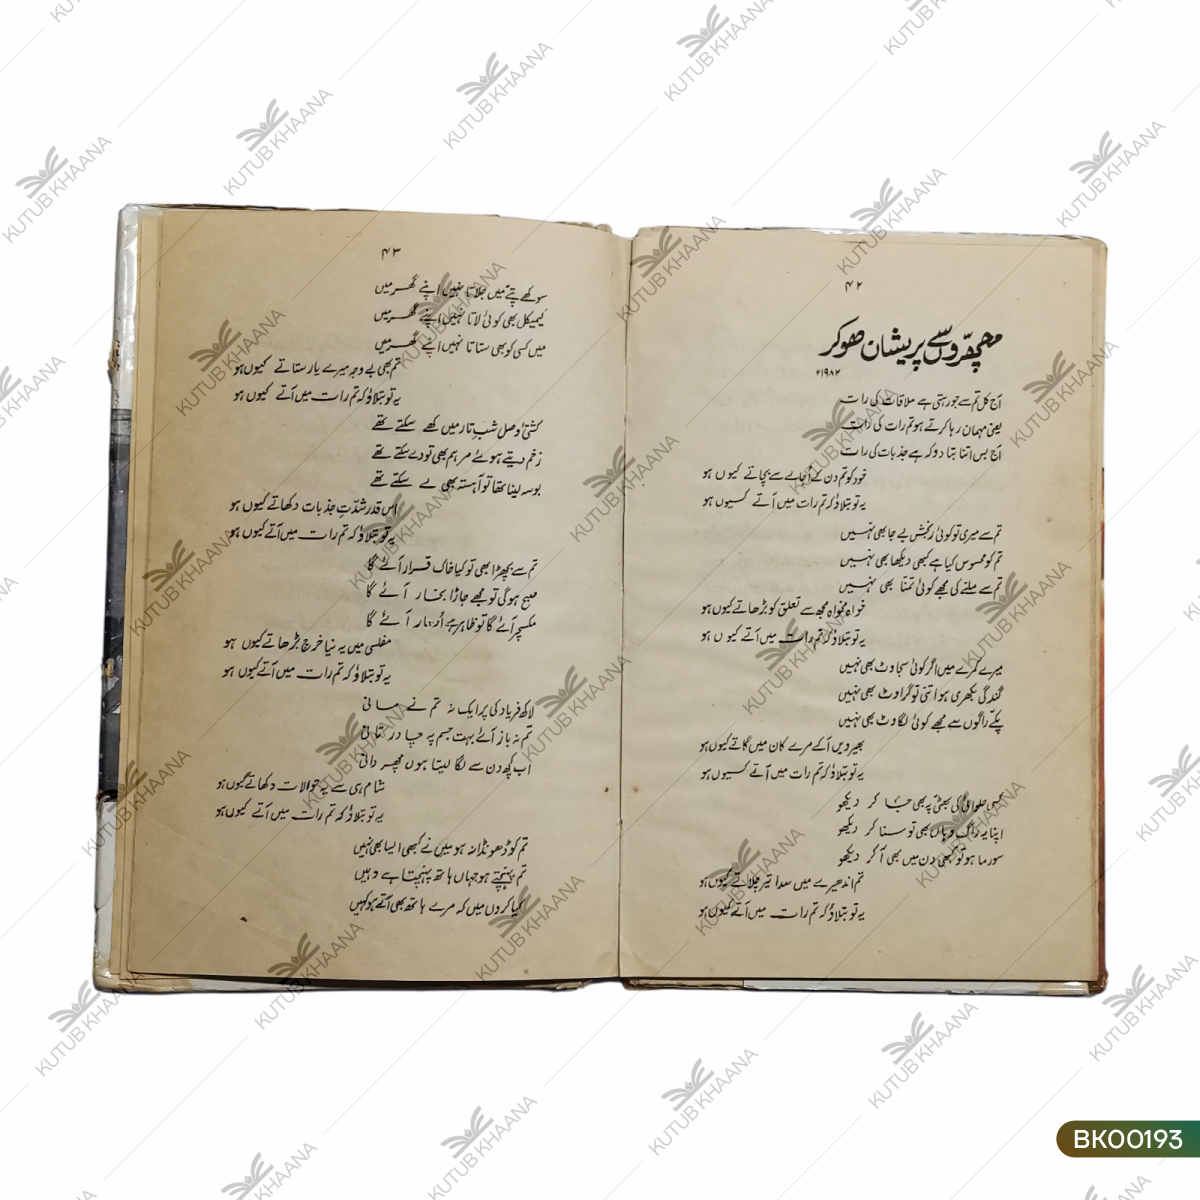 ۴۲
مچھروں سے پریشان ھوکر
۱۹۸۲ء
آج کل تم سے جو رہتی ہے ملاقات کی رات
یعنی مہمان رہا کرتے ہو تم رات کی رات
آج بس اتنا بتا دو کہ ہے جذبات کی رات
خود کو تم دن کے اُجالے سے بچاتے کیوں ہو
یہ تو بتلاؤ کہ تم رات میں آتے کیوں ہو
تم سے میری تو کوئی رنجش بے جا بھی نہیں
تم کو محسوس کیا ہے کبھی دیکھا بھی نہیں
تم سے ملنے کی مجھے کوئی تمنا بھی نہیں
خواہ مخواہ مجھ سے تعلق کو بڑھاتے کیوں ہو
یہ تو بتلاؤ کہ تم رات میں آتے کیوں ہو
میرے کمرے میں اگر کوئی سجاوٹ بھی نہیں
گندگی بکھری ہو اتنی تو گراوٹ بھی نہیں
پکے راگوں سے مجھے کوئی لگاوٹ بھی نہیں
بھیرویں آ کے مرے کان میں گاتے کیوں ہو
یہ تو بتلاؤ کہ تم رات میں آتے کیوں ہو
کسی حلوائی کی بھٹی پہ بھی جا کر دیکھو
اپنا یہ راگ وہاں بھی تو سنا کر دیکھو
سورما ہو تو کبھی دن میں بھی آ کر دیکھو
تم اندھیرے میں سدا تیر چلاتے کیوں ہو
یہ تو بتلاؤ کہ تم رات میں آتے کیوں ہو
۴۳
سوکھے پتے میں جلاتا نہیں اپنے گھر میں
کیمیکل بھی کوئی لاتا نہیں اپنے گھر میں
میں کسی کو بھی ستاتا نہیں اپنے گھر میں
تم بھی بے وجہ میرے یار ستاتے کیوں ہو
یہ تو بتلاؤ کہ تم رات میں آتے کیوں ہو
کشتئ وصل شبِ تار میں کھے سکتے تھے
زخم دیتے ہوئے مرہم بھی تو دے سکتے تھے
بوسہ لینا تھا تو آہستہ بھی لے سکتے تھے
اس قدر شدتِ جذبات دکھاتے کیوں ہو
یہ تو بتلاؤ کہ تم رات میں آتے کیوں ہو
تم سے بچھڑا بھی تو کیا خاک قرار آئے گا
صبح ہوگی تو مجھے جاڑا بخار آئے گا
مکسچر آئے گا تو ظاہر ہے اُدھار آئے گا
مفلسی میں یہ نیا خرچ بڑھاتے کیوں ہو
یہ تو بتلاؤ کہ تم رات میں آتے کیوں ہو
لاکھ فریاد کی پر ایک نہ تم نے مانی
تم نہ باز آئے بہت جسم پہ چادر تانی
اب کچھ دن سے لگا لیتا ہوں مچھر دانی
شام ہی سے یہ حوالات دکھاتے کیوں ہو
یہ تو بتلاؤ کہ تم رات میں آتے کیوں ہو
تم کو ڈھونڈا نہ ہو میں نے کبھی ایسا بھی نہیں
تم پہنچتے ہو جہاں ہاتھ پہنچتا ہے وہیں
کیا کروں میں کہ مرے ہاتھ بھی آتے ہو کہیں
KUTUB KHAANA
BK00193